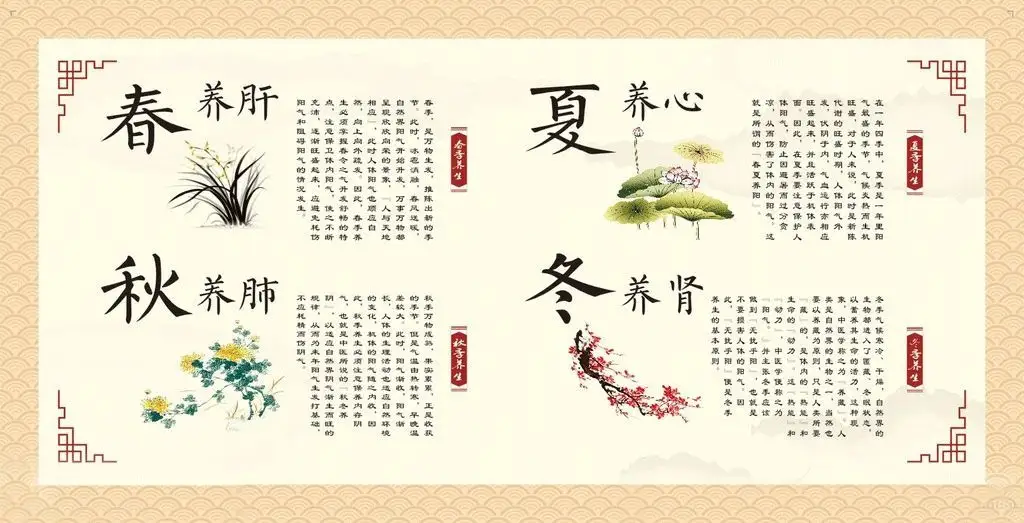 春
养肝
春季养生
春季,是万物生发、推陈出新的季
节。此时,冰雹消融,春风送暖,
自然界阳气开始升发,万事万物都
呈现欣欣向荣的景象,『人与天地
相应』,此时人体阳气也顺应自
然,向上向外疏发。因此,春季养
生必须掌握春令之气升发舒畅的特
点,注意保卫体内阳气,使之不断
充沛,逐渐旺盛起来,应避免耗伤
阳气和阻碍阳气的情况发生。
夏
养心
夏季养生
在一年四季中,夏季是一年里阳
气最盛的季节,气候炎热而生机
旺盛,对于人来说,此时是新陈
代谢的旺盛时期,人体阳气外
发,伏阴于内,气血运行亦相应
旺盛起来,并且活跃于机体表
面。因此,在夏季要注意保护人
体阳气,防止因避暑而过分贪
凉,从而伤害了体内的阳气。这
就是所谓的『春夏养阳』。
秋
养肺
秋季养生
秋季万物成熟,果实累累,正是收获
的季节。但是气温由热转寒,早晚温
差较大。此时,阳气渐收,阴气渐
长,人体的生理活动也适应自然环境
的变化,机体的阳气随之内收,因
此,秋季养生必须注意保养内存阴
气,也就是中医所说的『秋冬养
阴』,以适应自然界阴气渐生而旺的
规律,从而为来年阳气生发打基础,
不应耗精而伤阴气。
冬
养肾
冬季养生
冬季气候寒冷、干燥,自然界的
生物都进入了匿藏、冬眠状态,
以蓄养其生命的活力,这种现
象,中医学称之为『养藏』。人
类是自然界的生物之一,当然也
要以养藏为原则,只是人类所要
『藏』的,是体内的『热能』和
生命的『动力』。这『热能』和
『动力』,中医学便称之为
『阳气』,并主张冬季应该
做到『无扰乎阳』,也就是
不要损害人体的阳气,因
此,『无扰乎阳』便是冬季
养生的基本原则。